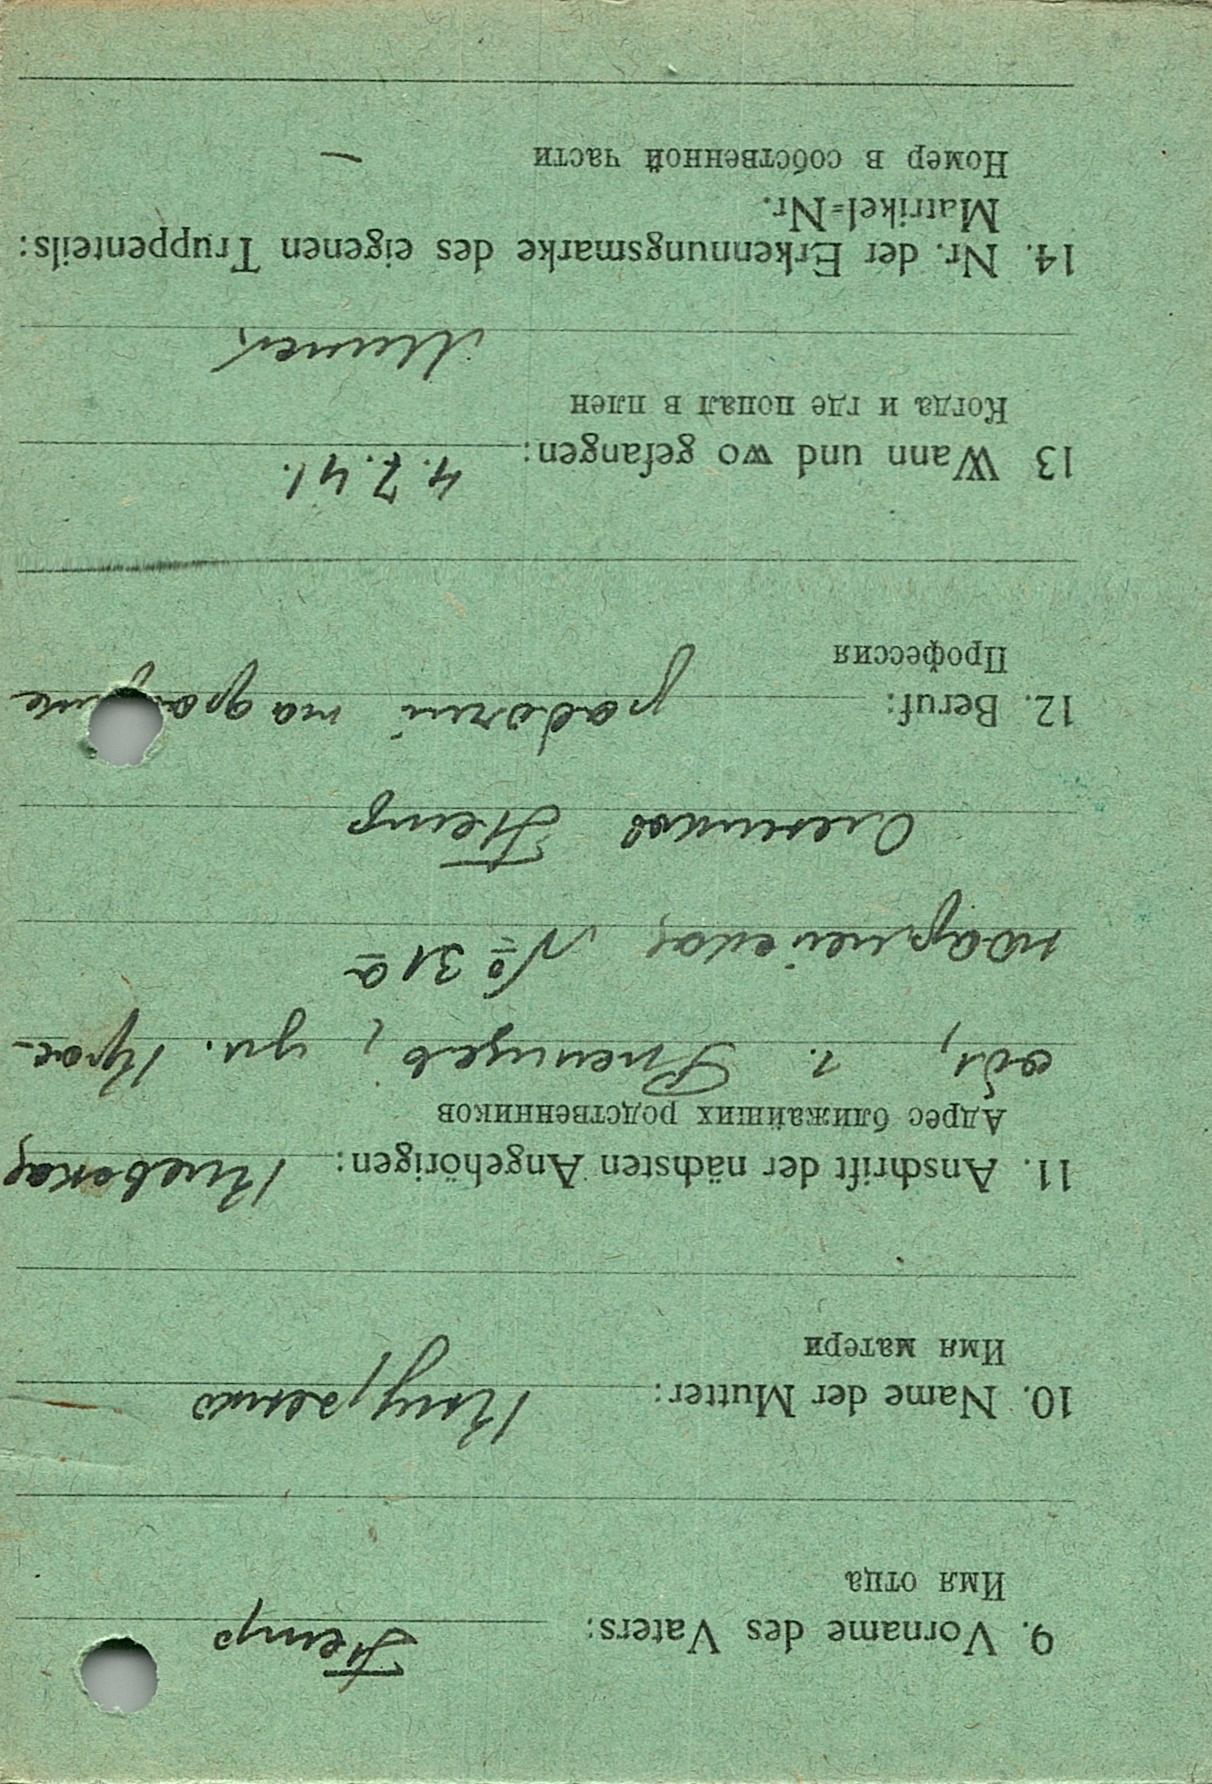 9. Vorname des Vaters: Петр
Имя отца
10. Name der Mutter:
Имя матери
11. Anschrift der nächsten Angehörigen: Киевская
Адрес ближайших родственников
обл, г. Ржищев, ул. Крас-
ноармейская № 31а
Олейников Петр
12. Beruf: рабочий на фабрике
Профессия
13 Wann und wo gefangen: 4.7.41.
Когда и где попал в плен
Минск
14. Nr. der Erkennungsmarke des eigenen Truppenteils:
Matrikel=Nr.
Номер в собственной части –